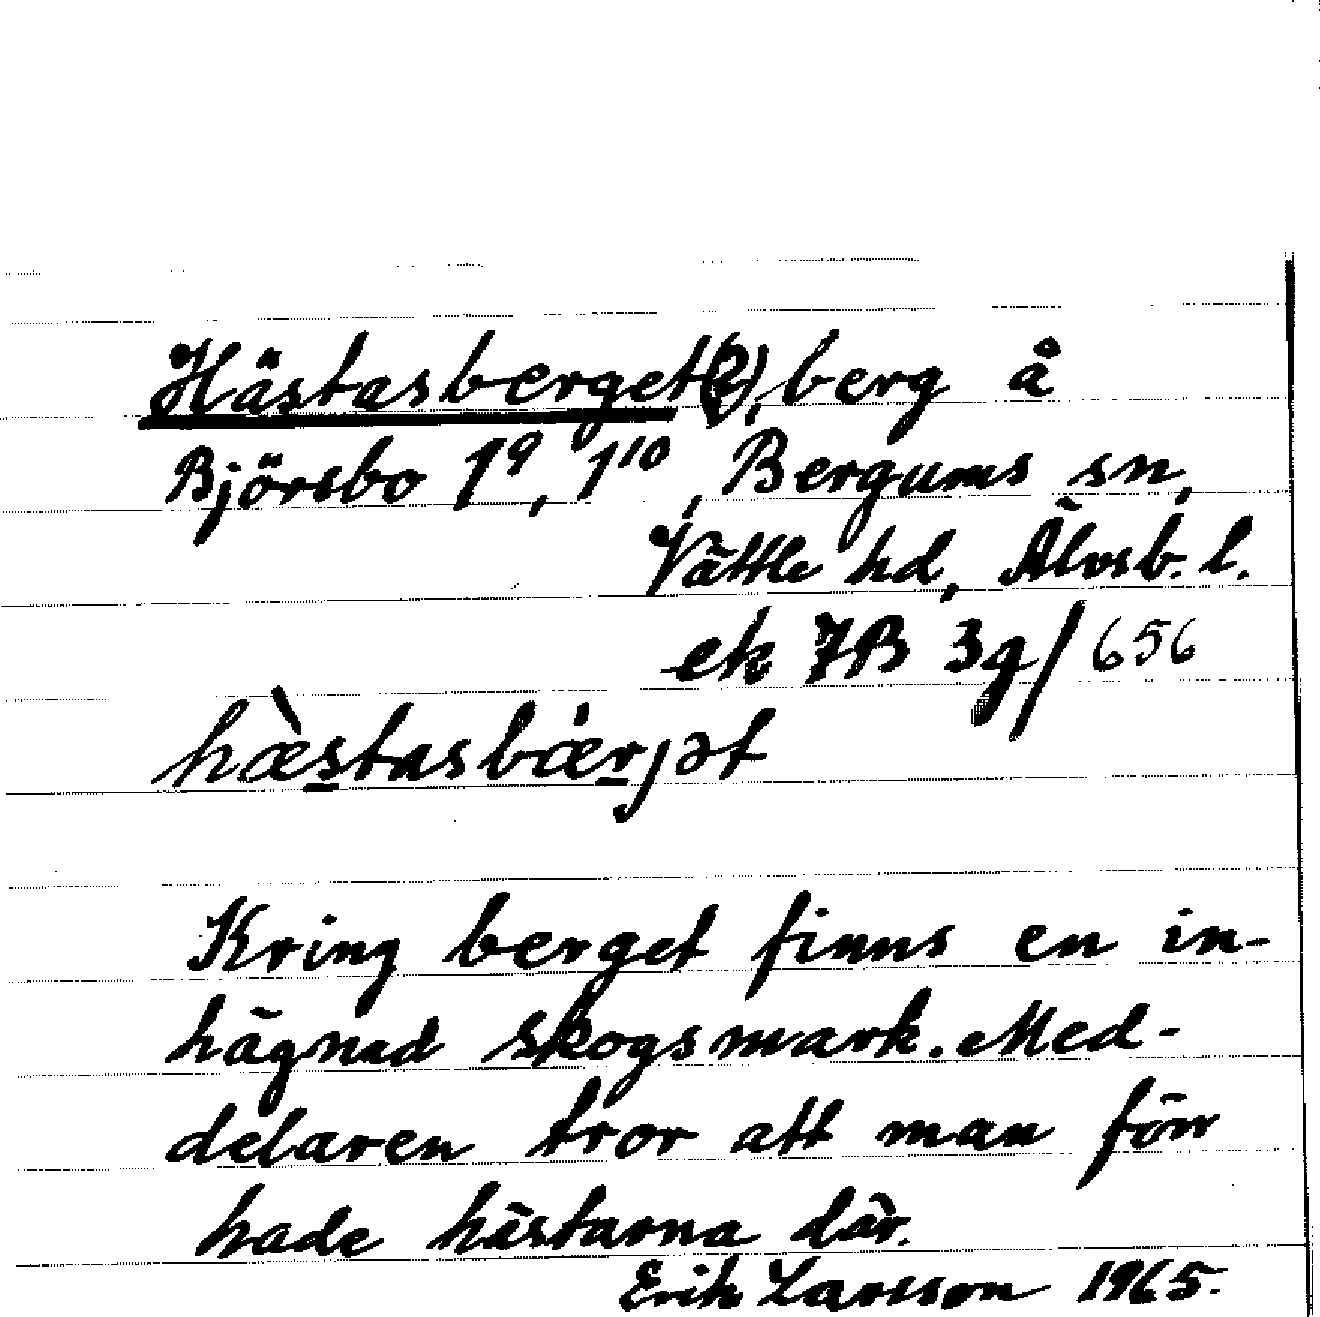 Hästasberget(2), berg å
Björsbo 1⁹, 1¹⁰, Bergums sn,
Vättle hd, Älvsb. l.
ek 7B 3g/656
hæ̀stasbæ̇rjət
Kring berget finns en in-
hägnad skogsmark. Med-
delaren tror att man förr
hade hästarna där.
Erik Larsson 1965.